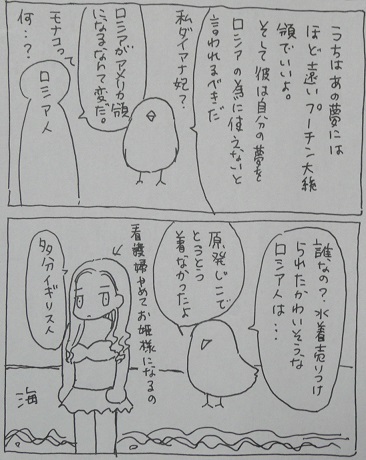 うちはあの夢には
ほど遠いプーチン大統
領でいいよ。
そして彼は自分の夢を
ロシアの為に使えないと
言われるべきだ
私ダイアナ妃?
ロシアがアメリカ領
になるなんて変だ。
モナコって
何…?
ロシア人
誰なの?水着売りつけ
られたかわいそうな
ロシア人は…
原発じこで
とうとう
着なかったよ
看護婦やめてお姫様になるの
多分イギリス人
海